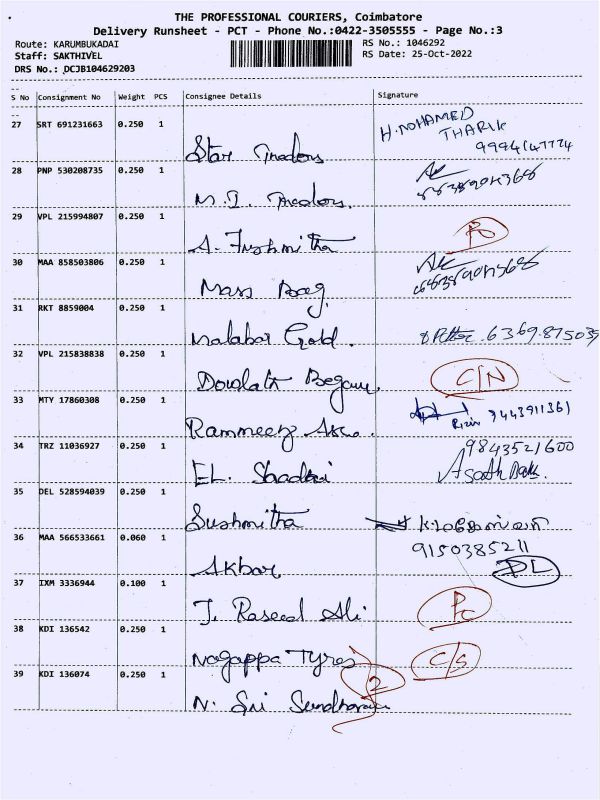 THE PROFESSIONAL COURIERS, Coimbatore
Delivery Runsheet - PCT - Phone No.:0422-3505555 - Page No.:3
Route: KARUMBUKADAI RS No.: 1046292
Staff: SAKTHIVEL RS Date: 25-Oct-2022
DRS No.: DCJB104629203
--
S No Consignment No Weight PCS Consignee Details Signature
--
27 SRT 691231663 0.250 1
H. MOHAMED
THARIK
Star Traders
28 PNP 530208735 0.250 1
M. I. Traders.
29 VPL 215994807 0.250 1
A. Fushmitha
30 MAA 858503806 0.250 1
Mass Bag.
31 RKT 8859004 0.250 1
Malabar Gold.
32 VPL 215838838 0.250 1
Dowlath Begam. C/N
33 MTY 17860308 0.250 1
Rizin 9443911361
34 TRZ 11036927 0.250 1 9843521600
EL. Shadai
35 DEL 528594039 0.250 1
Sushmitha
36 MAA 566533661 0.060 1 9150385211
Akbar DL
37 IXM 3336944 0.100 1
J. Raseed Ali
38 KDI 136542 0.250 1 C/S
Nagappa Tyres
39 KDI 136074 0.250 1 2
N. Sri Sundharam